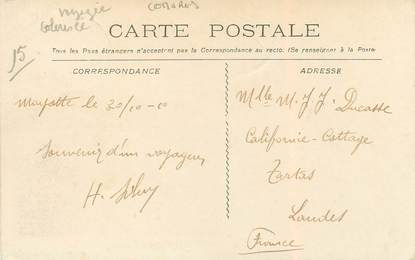 voyagée
COMORES
15
CARTE POSTALE
Tous les Pays étrangers n'acceptent pas la Correspondance au recto. (Se renseigner à la Poste.
CORRESPONDANCE
Mayotte le 30/10-10
Souvenir d'un voyageur
H.
ADRESSE
Mlle M. J. J. Ducasse
Californie-Cottage
Tartas
Landes
France